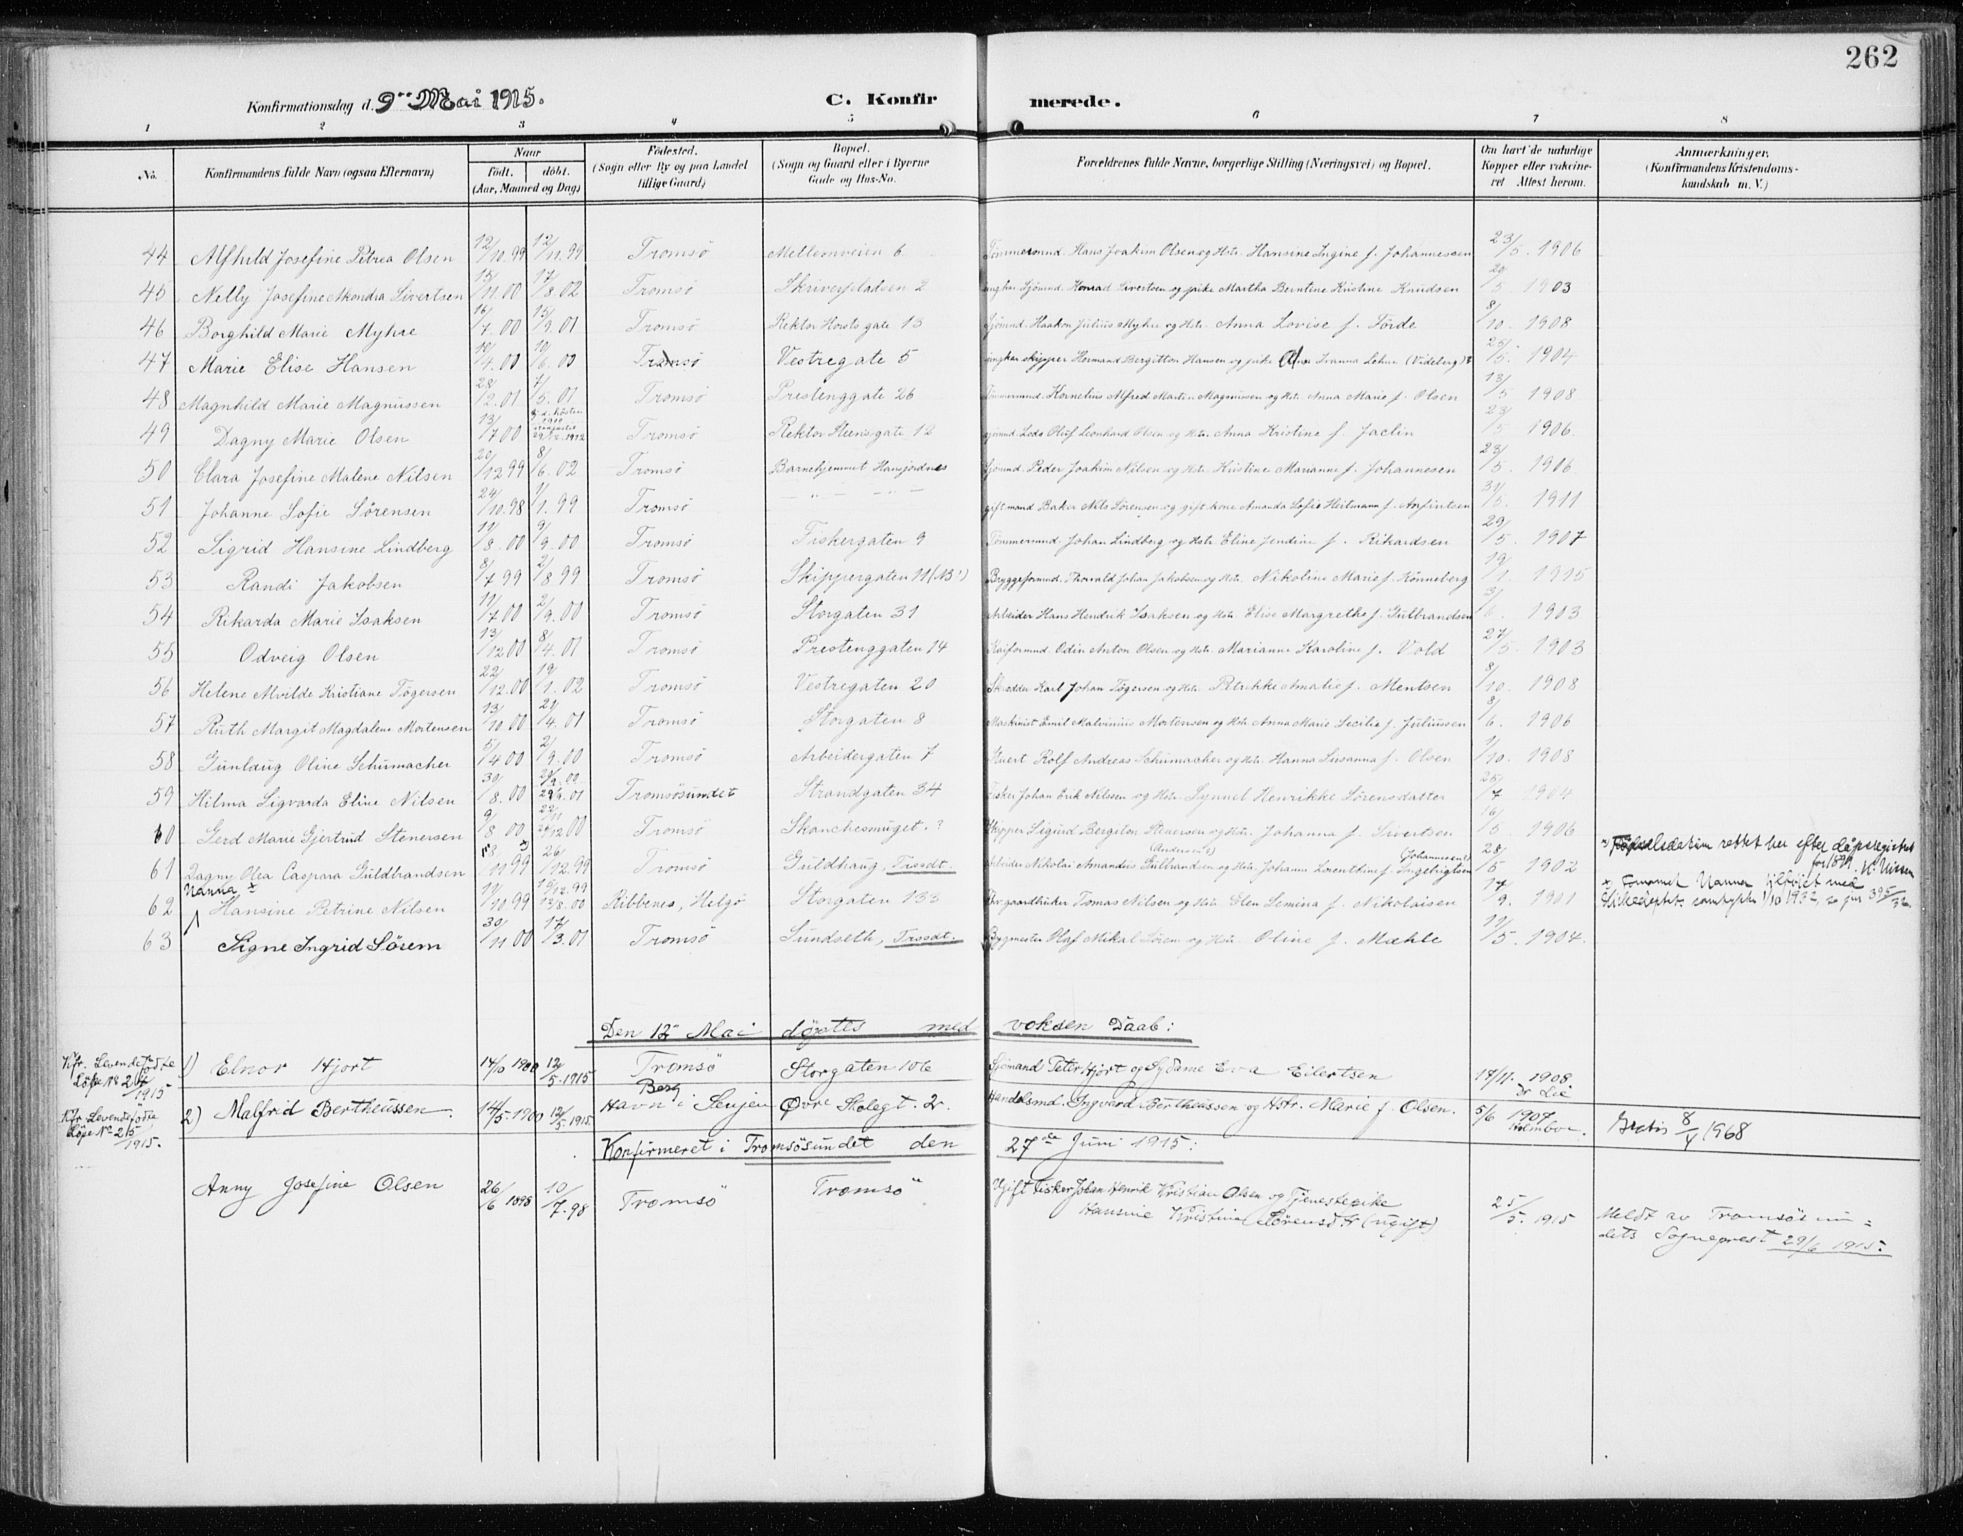 262
Konfirmationsdag d. 9de Mai 1915. C. Konfirmerede.
1 2 3 4 5 6 7 8
No. Konfirmandens fulde Navn (ogsaa Efternavn) Naar født. døbt. (Aar, Maaned og Dag) Fødested. (Sogn eller By og paa Landet tillige Gaard) Bopæl. (Sogn og Gaard eller i Byerne Gade og Hus-No. Forældrenes fulde Navne, borgerlige Stilling (Næringsvei) og Bopæl. Om havt de naturlige Kopper eller vakcineret Attest herom. Anmærkninger. (Konfirmandens Kristendomskundskab m. V.)
44 Alfhild Josefine Petrea Olsen 12/10.99 12/11.99 Tromsö Mellemveien 6 Tömmermd. Hans Joakim Olsen og Hstr. Hansine Ingine f. Johannessen 23/5. 1906
45 Nelly Josefine Alkondra Sivertsen 15/11.00 17/8.02 Tromsö Skriverpladsen 2 ungkar Sjömd. Konrad Sivertsen og pike Martha Berntine Kristine Knudsen 1903
46 Borghild Marie Myhre 16/7.00 15/9.01 Tromsö Rektor Horsts gate 13 Sjömd. Haakon Julius Myhre og Hstr. Anna Lovise f. Förde 8/10. 1908
47 Marie Elise Hansen 10/4.00 10/6.00 Tromsö Vestregate 5 ungkar skipper Hermand Bergitton Hansen og pike Ivanna Lehne (Videberg) 1904
48 Magnhild Marie Magnussen 28/2.01 7/5.01 Tromsö Prestenggate 26 Tömmermd. Kornelius Alfred Martin Magnussen og Hstr. Anna Marie f. Olsen 13/5 1908
49 Dagny Marie Olsen 13/7.00 Tromsö Rektor Steens gate 12 Sjömd. Lods Oluf Leonhard Olsen og Hstr. Anna Kristine f. Jaclin 23/5 1906.
50 Clara Josefine Malene Nilsen 20/12 99 8/6.02 Tromsö Barnehjemmet Hansjordnes Sjömd. Peder Joakim Nilsen og Hstr. Kristine Marianne f. Johannesen 23/5. 1906
51 Johanne Sofie Sörensen 24/10.98 1/1.99 Tromsö — " — — " — gift mand Baker Nils Sörensen og gift kone Amanda Sofie Heitmann f. Arfintsen 31/5. 1911
52 Sigrid Hansine Lindberg 11/8.00 9/9.00 Tromsö Fiskergaten 9 Tömmermd. Johan Lindberg og Hstr. Eline Jendine f. Rikardsen 29/5. 1907
53 Randi Jakobsen 8/7 99 2/8 99 Tromsö Skippergaten 11 (13?) Bryggeformd. Thorvald Johan Jakobsen og Hstr. Nikoline Marie f. Könneberg 19/1. 1915
54 Rikarda Marie Isaksen 11/7.00 2/9.00 Tromsö Storgaten 31 Arbeider Hans Hendrik Isaksen og Hstr. Elise Margrethe f. Gulbrandsen 3/6. 1903
55 Odveig Olsen 13/12.00 8/4.01 Tromsö Prestenggaten 14 Kaiformd. Odin Anton Olsen og Hstr. Marianne Karoline f. Vold 27/5. 1903
56 Helene Alvilde Kristiane Tögersen 22/12.00 19/1.02 Tromsö Vestregaten 20 Skredder Karl Johan Tögersen og Hstr. Petrikke Amalie f. Mentsen 8/10. 1908
57 Ruth Margit Magdalene Mortensen 13/10 00 21/4.01 Tromsö Storgaten 8 Maskinist Emil Malvinius Mortensen og Hstr. Anna Marie Secilie f. Juliussen 8/6. 1906
58 Gunlaug Oline Schumacher 5/4 00 2/9.00 Tromsö Arbeidergaten 7 Rolf Andreas Schumacher og Hstr. Hanna Susanna f. Olsen 1/10. 1908
59 Hilma Sigvarda Eline Nilsen 30/8.00 29/6.01 Tromsösundet Strandgaten 34 Fisker Johan Erik Nilssen og Hstr. Synnel Henrikke Sörensdatter 25/7 1904
60 Gerd Marie Gjertrud Stenersen 9/8 00 26/12 00 Tromsö Skanchesmuget. ? Skipper Sigurd Bergeton Stenersen og Hstr. Johanna f. Sivertsen 16/5. 1906
61 Dagny Olea Caspara Guldbrandsen 18/11 99 26/12.99 Tromsö Guldhaug, Trssdt. Arbeider Nikolai Amandus Gulbrandsen (Andersen?) og Hstr. Johanne Lorentine f. Ingebrigtsen (Johannessen?) 28/5 1902 x) Födselsdatum rettet her efter dåpsregistret for 1899. K. Nissen
62 Nanna x Hansine Petrine Nilsen 11/10 99 10/12.99 13/8.00 Ribbenes, Helgö Storgaten 133 Gaardbruker Tomas Nilsen og Hstr. Elen Semina f. Nikolaisen 17/9. 1901 x Fornavnet Nanna tilføiet med Skikedeptet. samtykke 1/10 1932, 395/32.
63 Signe Ingrid Sörem 30/11 00 17/3.01 Tromsö Sundseth, Trssdt. Bygmester Olaf Mikal Sörem og Hstr. Oline f. Mæhle 11/5. 1904.
Den 12te Mai döptes med voksen Daab:
Kfr. Levendefödte Löpe No 24/1915 1) Elnor Hjort 14/6 1900 12/5.1915 Tromsö Storgaten 106 Sjömand Peter Hjort og Sydame Eva Eilertsen 14/11. 1908 Dr Lie
Kfr. Levendefödte Löpe No 25/1915. 2) Malfrid Bertheussen. 14/5.1900 12/5.1915. Berg Havn i Senjen Övre Skolegt. 2. Handelsmd. Ingvard Bertheussen og Hstr. Marie f. Olsen. 5/6 1907 Holmboe. Gratis 8/4 1968
Konfirmeret i Tromsösundet den 27de Juni 1915:
Anny Josefine Olsen 26/6 1898 10/7.98 Tromsö Tromsö Ugift Fisker Johan Henrik Kristian Olsen og Tjenestepike
Hansine Kristine Sörensdtr (ugift) 25/5. 1915 Meldt av Tromsösundets Sogneprest 29/6 1915.